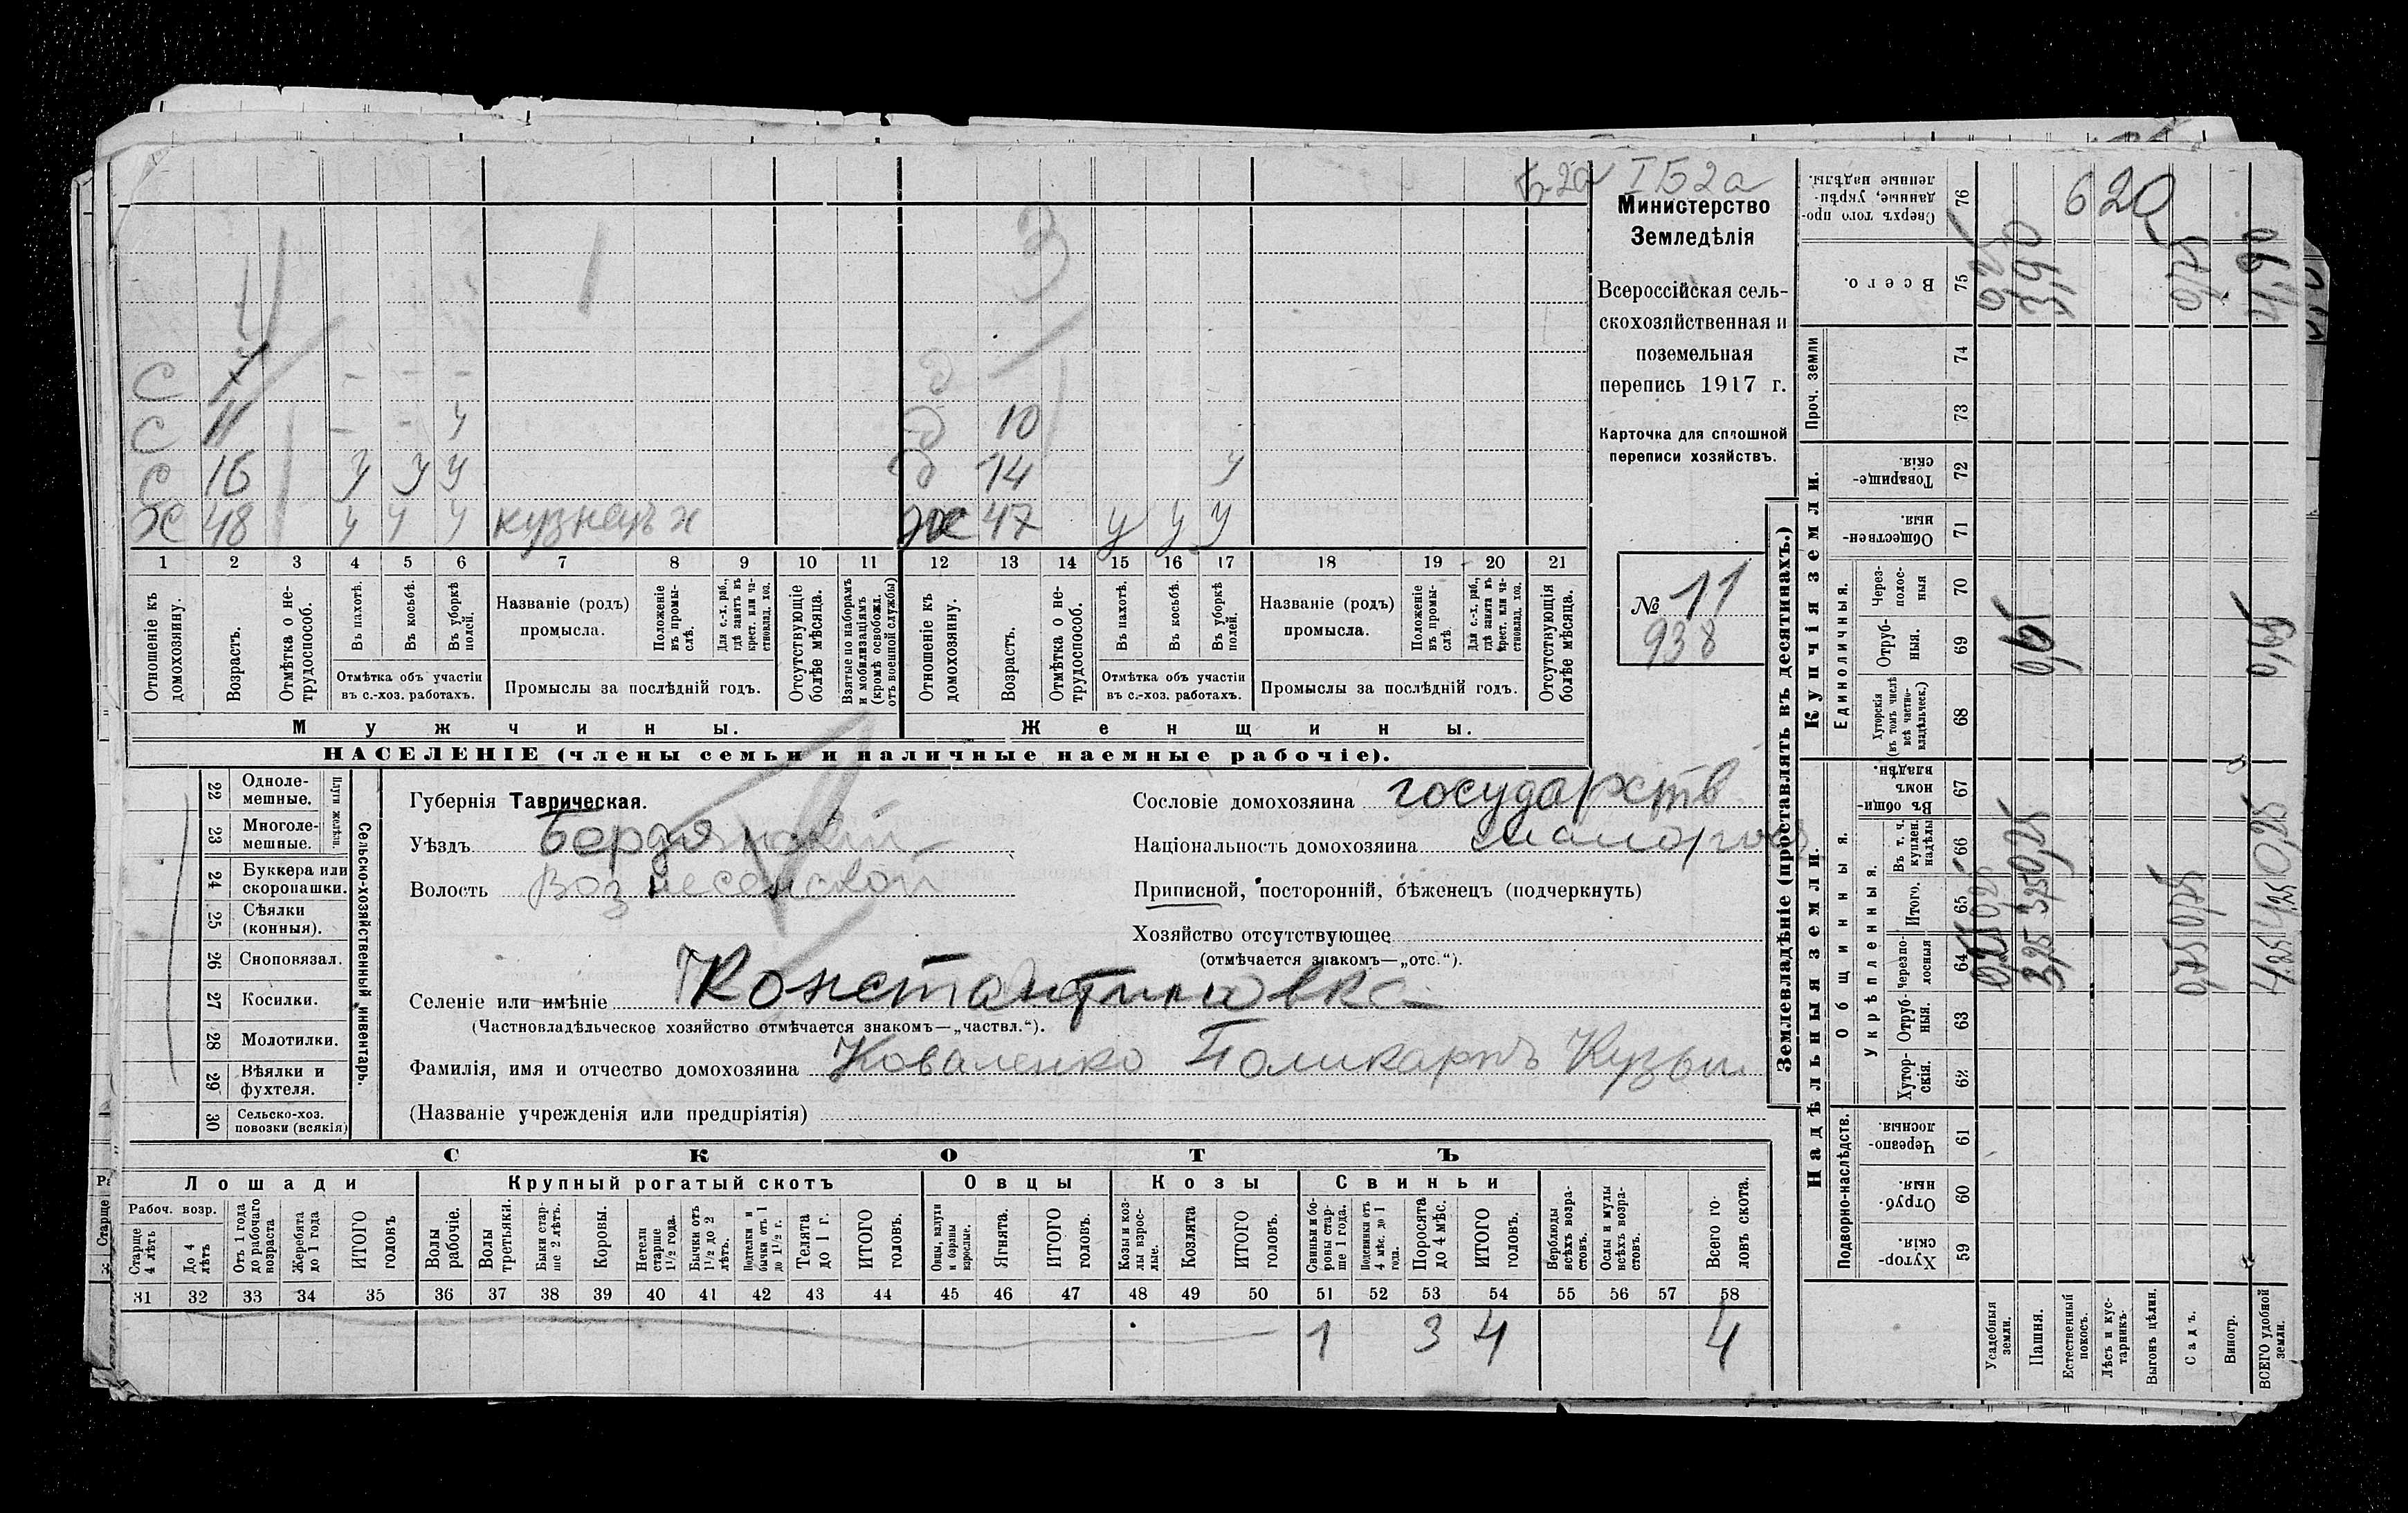 Б 2а
I Б 2а
Министерство
Земледѣлія
Всероссійская сель-
скохозяйственная и
поземельная
перепись 1917 г.
Карточка для сплошной
переписи хозяйствъ.
№ 11
938
С - - -
С 11 - - У
С 16 У У У
Х 48 У У У кузнецъ х
Д
Д 10
Д 14 У
Ж 47 У У У
1 2 3 4 5 6 7 8 9 10 11 12 13 14 15 16 17 18 19 20 21
Отношеніе къ домохозяину.
Возрастъ.
Отмѣтка о не-трудоспособ.
Въ пахотѣ.
Въ косьбѣ.
Въ уборкѣ полей.
Отмѣтка объ участіи
въ с.-хоз. работахъ.
Названіе (родъ)
промысла.
Положеніе въ промы-слѣ.
Для с.-х. раб., гдѣ занятъ въ крест. или ча-стновлад. хоз.
Промыслы за послѣдній годъ.
Отсутствующіе болѣе мѣсяца.
Взятые по наборамъ и мобилизаціямъ (кромѣ освобожд. отъ военной службы)
Отношеніе къ домохозяину.
Возрастъ.
Отмѣтка о не-трудоспособ.
Въ пахотѣ.
Въ косьбѣ.
Въ уборкѣ полей.
Отмѣтка объ участіи
въ с.-хоз. работахъ.
Названіе (родъ)
промысла.
Положеніе въ промы-слѣ.
Для с.-х. раб., гдѣ занята въ крест. или ча-стновлад. хоз.
Промыслы за послѣдній годъ.
Отсутствующія болѣе мѣсяца.
Мужчины.
Женщины.
НАСЕЛЕНІЕ (члены семьи и наличные наемные рабочіе).
22 Одноле-мешные.
23 Многоле-мешные.
Плуги желѣзн.
24 Буккера или скоропашки.
25 Сѣялки (конныя).
26 Сноповязал.
27 Косилки.
28 Молотилки.
29 Вѣялки и фухтеля.
30 Сельско-хоз. повозки (всякія)
Сельско-хозяйственный инвентарь.
Губернія Таврическая.
Уѣздъ Бердянскій
Волость Вознесенской
Сословіе домохозяина государств
Національность домохозяина малоросс
Приписной, посторонній, бѣженецъ (подчеркнуть)
Хозяйство отсутствующее
(отмѣчается знакомъ—„отс.“).
Селеніе или имѣніе Константиновка
(Частновладѣльческое хозяйство отмѣчается знакомъ—„частвл.“).
Фамилія, имя и отчество домохозяина Коваленко Поликарпъ Кузьм
(Названіе учрежденія или предпріятія)
СКОТЪ
Лошади
Крупный рогатый скотъ
Овцы
Козы
Свиньи
Рабоч. возр.
Старше 4 лѣтъ
До 4 лѣтъ
Отъ 1 года до рабочаго возраста
Жеребята до 1 года
ИТОГО головъ
Волы рабочіе.
Волы третьяки.
Быки стар-ше 2 лѣтъ.
Коровы.
Нетели старше 1½ года.
Бычки отъ 1½ до 2 лѣтъ.
Подтелки и бычки отъ 1 до 1½ г.
Телята до 1 г.
ИТОГО головъ.
Овцы, валухи и бараны взрослые.
Ягнята.
ИТОГО головъ.
Козы и коз-лы взрос-лые.
Козлята
ИТОГО головъ.
Свиньи и бо-ровы стар-ше 1 года.
Подсвинки отъ 4 мѣс. до 1 года.
Поросята до 4 мѣс.
ИТОГО головъ.
Верблюды всѣхъ возра-стовъ.
Ослы и мулы всѣхъ возра-стовъ.
Всего го-ловъ скота.
31 32 33 34 35 36 37 38 39 40 41 42 43 44 45 46 47 48 49 50 51 52 53 54 55 56 57 58
1 3 4 4
Землевладѣніе (проставлять въ десятинахъ.)
Надѣльныя земли.
Купчія земли.
Проч. земли
Подворно-наслѣдств.
Общинныя.
Укрѣпленныя.
Единоличныя.
Сверхъ того про-данные, укрѣп-ленные надѣлы. 76
Всего. 75
74
73
Товарище-скія. 72
Обществен-ныя. 71
Через-полос-ныя 70
Отруб-ныя. 69
Хуторскія (въ томъ числѣ всѣ частно-владѣльческ.) 68
Въ общин-номъ владѣн. 67
Въ т. ч. куплен. надѣлы 66
Итого. 65
Черезпо-лосныя 64
Отруб-ныя. 63
Хутор-скія. 62
Черезпо-лосныя 61
Отруб-ныя. 60
Хутор-скія. 59
Усадебныя земли.
Пашня.
Естественный покосъ.
Лѣсъ и кус-тарникъ.
Выгонъ цѣлин.
Садъ.
Виногр.
ВСЕГО удобной земли.
620
0,25
3,90
0,75
4,90
0,65
0,65
0,25 0,25
3,25 3,25 0,25
0,75 0,75
4,25 4,25 0,25